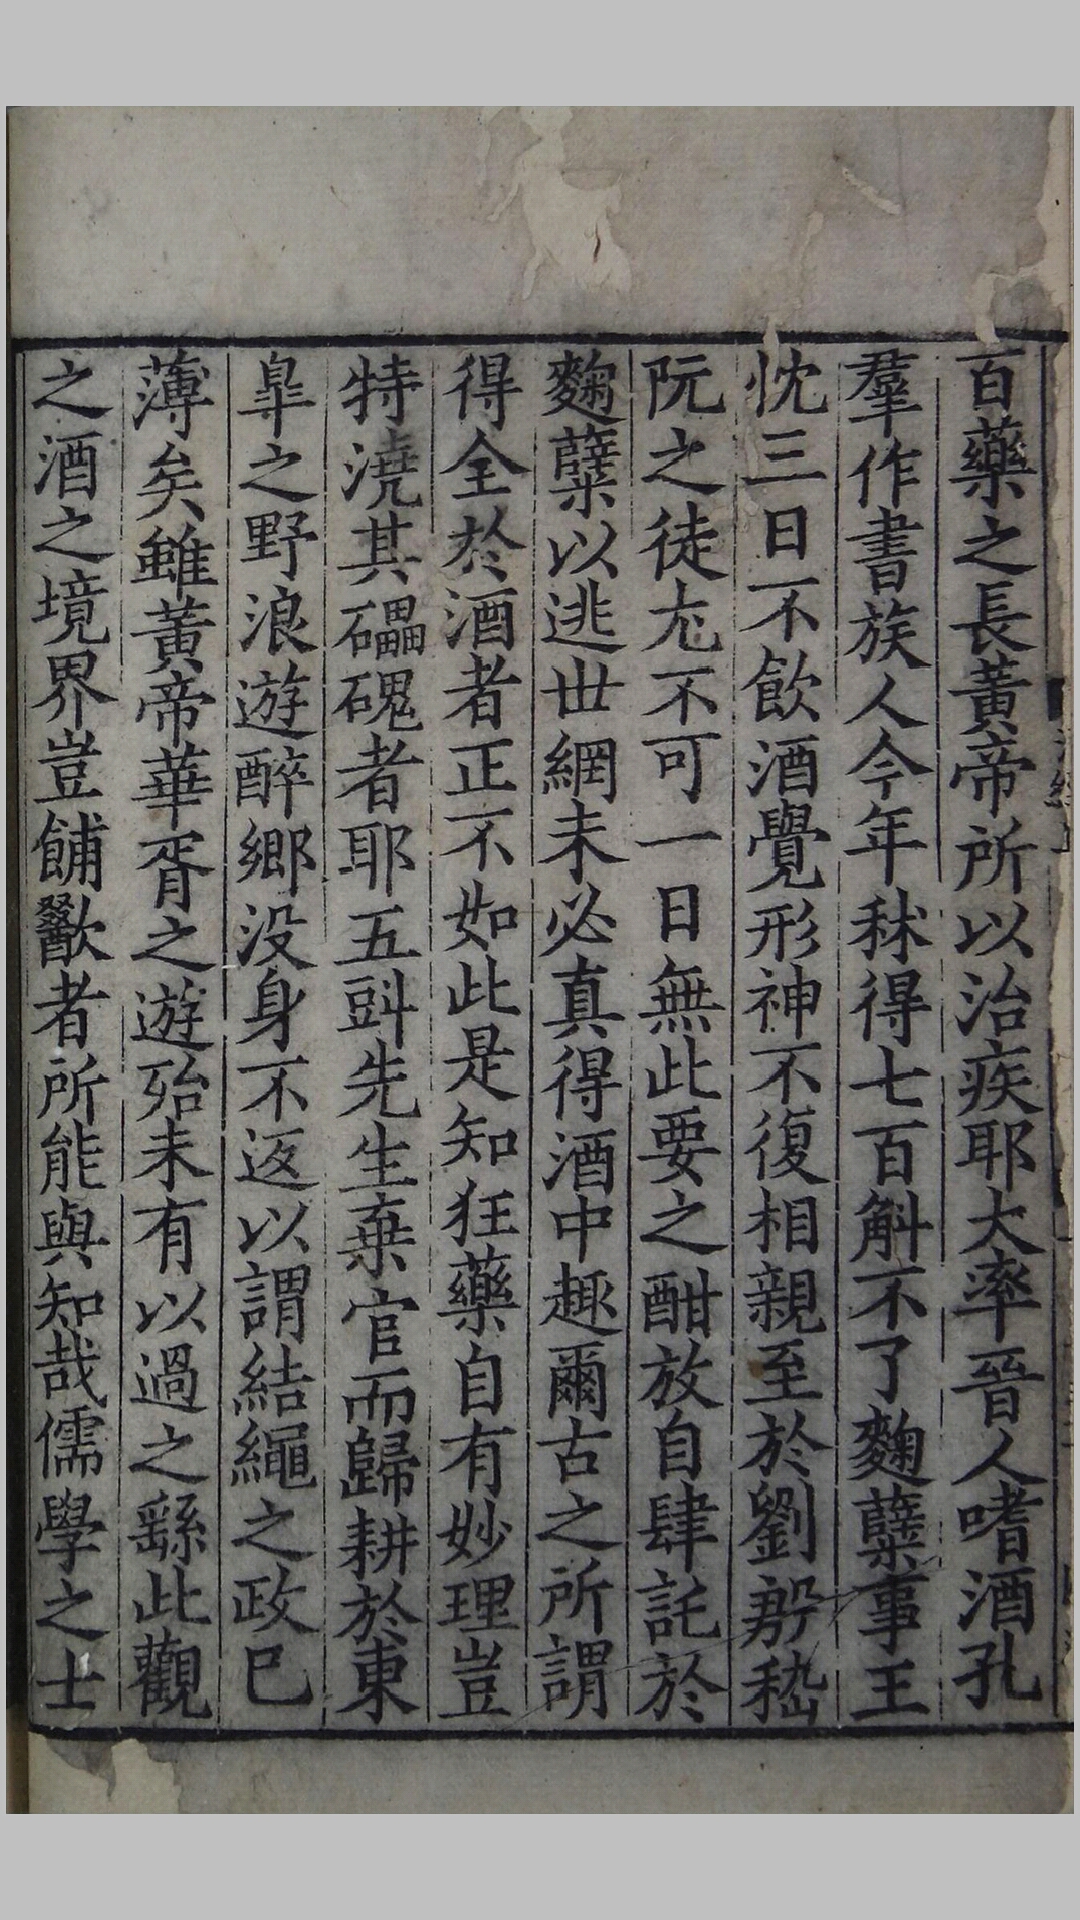 百藥之長黃帝所以治疾耶大率晉人嗜酒孔
羣作書族人今年秫得七百斛不了麴糱事王
忱三日不飲酒覺形神不復相親至於劉嵇
阮之徒尤不可一日無此要之酣放自肆託於
麴糱以逃世網未必真得酒中趣爾古之所謂
得全於酒者正不如此是知狂藥自有妙理豈
特澆其礧磈者耶五㪷先生棄官而歸耕於東
臯之野浪遊醉鄉没身不返以謂結繩之政已
薄矣雖黃帝華胥之遊殆未有以過之繇此觀
之酒之境界豈餔歠者所能與知哉儒學之士